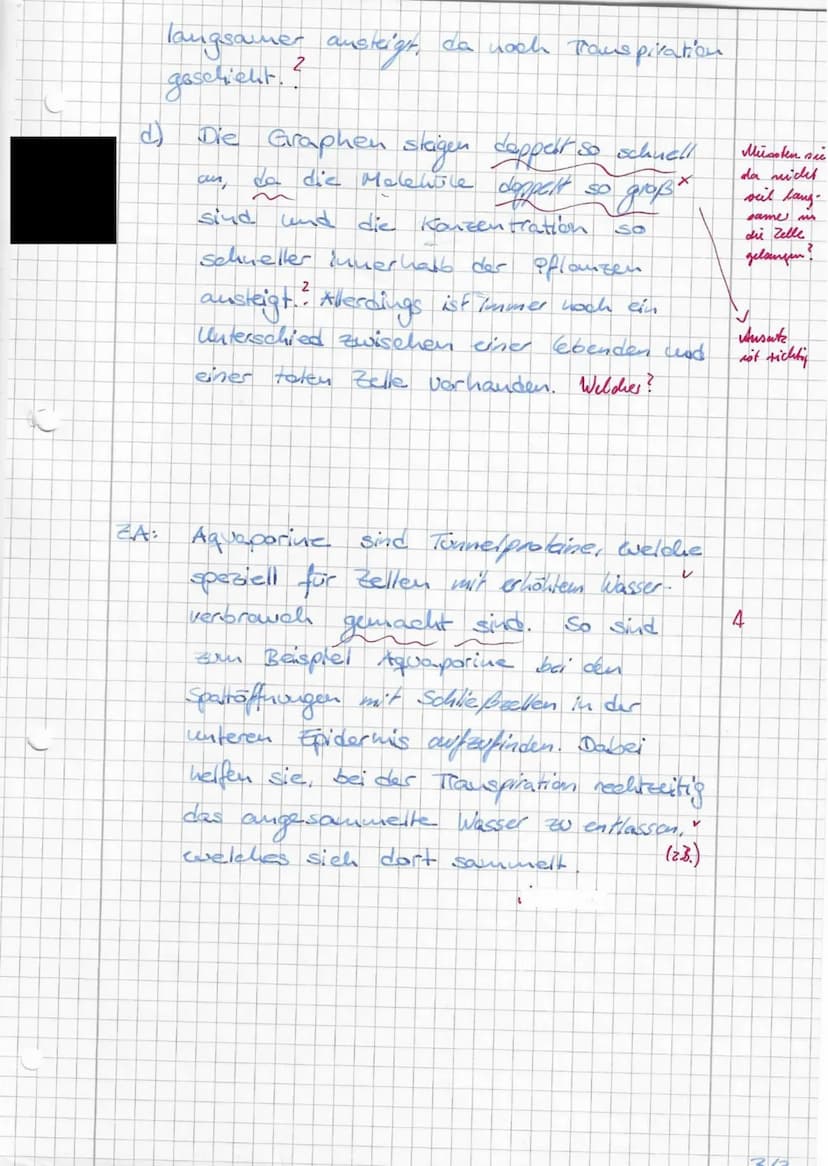 langsamer ansteigt, da noch Transpiration
geschieht. ?
d) Die Graphen steigen doppelt so schnell
an, da die Moleküle doppelt so groß x
sind und die Konzentration so
schneller innerhalb der Pflanzen
ansteigt. ? Allerdings ist immer noch ein
Unterschied zwischen einer lebenden und
einer toten Zelle vorhanden. Welcher?
Müssten sie
da nicht
viel lang-
samer in
die Zelle
gelangen?
Ansatz
ist richtig
ZA: Aquaporine sind Tunnelproteine, welche
speziell für Zellen mit erhöhtem Wasser-
verbrauch gemacht sind. So sind
zum Beispiel Aquaporine bei den
Spaltöffnungen mit Schließzellen in der
unteren Epidermis aufzufinden. Dabei
helfen sie, bei der Transpiration rechtzeitig
das angesammelte Wasser zu entlassen,
welches sich dort sammelt.
(zB.)